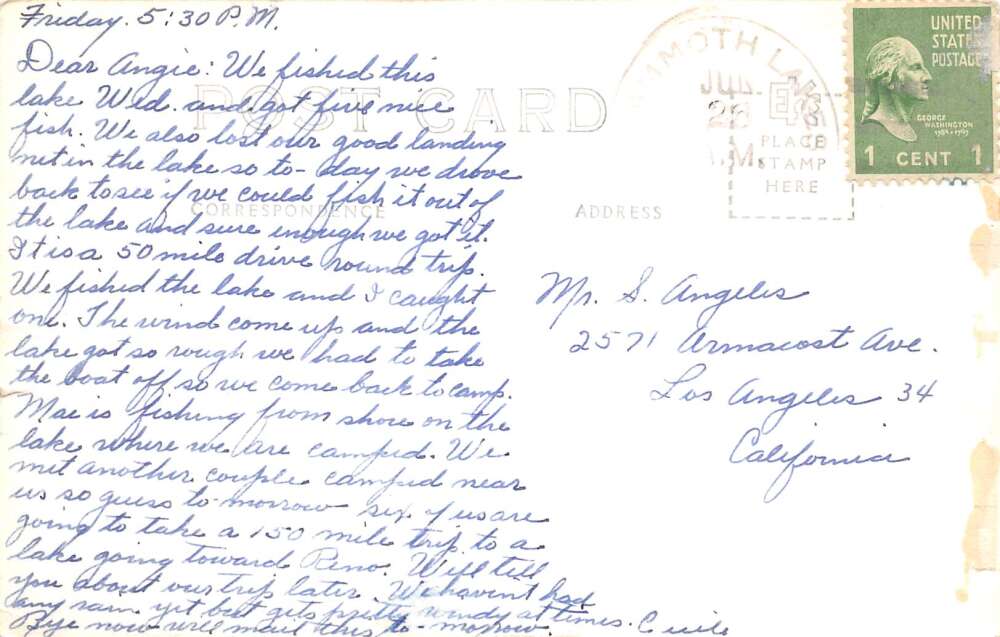 Friday. 5:30 P.M.
Dear Angie: We fished this
lake Wed. and got five nice
fish. We also lost our good landing
net in the lake so to-day we drove
back to see if we could fish it out of
the lake and sure enough we got it.
It is a 50 mile drive round trip.
We fished the lake and I caught
one. The wind come up and the
lake got so rough we had to take
the boat off so we come back to camp.
Mae is fishing from shore on the
lake where we are camped. We
met another couple camped near
us so guess to-morrow six of us are
going to take a 150 mile trip to a
lake going toward Reno. Will tell
you about our trip later. We havent had
any rain yet but gets pretty windy at times.
Bye now will mail this to-morrow. Cecile
POST CARD
CORRESPONDENCE
ADDRESS
MAMMOTH LAKES
28
.M.
EKC
PLACE
STAMP
HERE
UNITED
STATES
POSTAGE
GEORGE
WASHINGTON
1789-1797
1 CENT 1
Mr. S. Angeles
2571 Armacost Ave.
Los Angeles 34
California